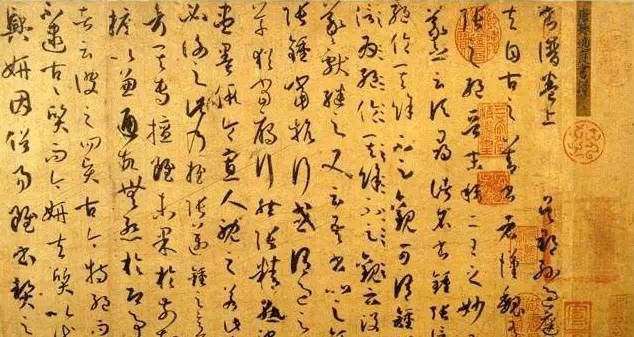 書譜卷上 吳郡孫過庭
夫自古之善書者漢魏
張之絕晉末稱二王之妙
羲之云頃尋諸名書鍾張信
絕倫其餘不足觀可謂鍾
信為絕倫其餘不足觀云沒
羲獻繼之又云吾書比之
張鍾當抗行或謂過之
草猶當鴈行然張精熟池
盡墨假令寡人耽之若此
必謝之此乃推張邁鍾之意
考其專擅雖未果於前
摭以兼通故無慚於即事
者云彼之四賢古今特絕而
不逮古古質而今妍夫質以代
興妍因俗易雖書契之